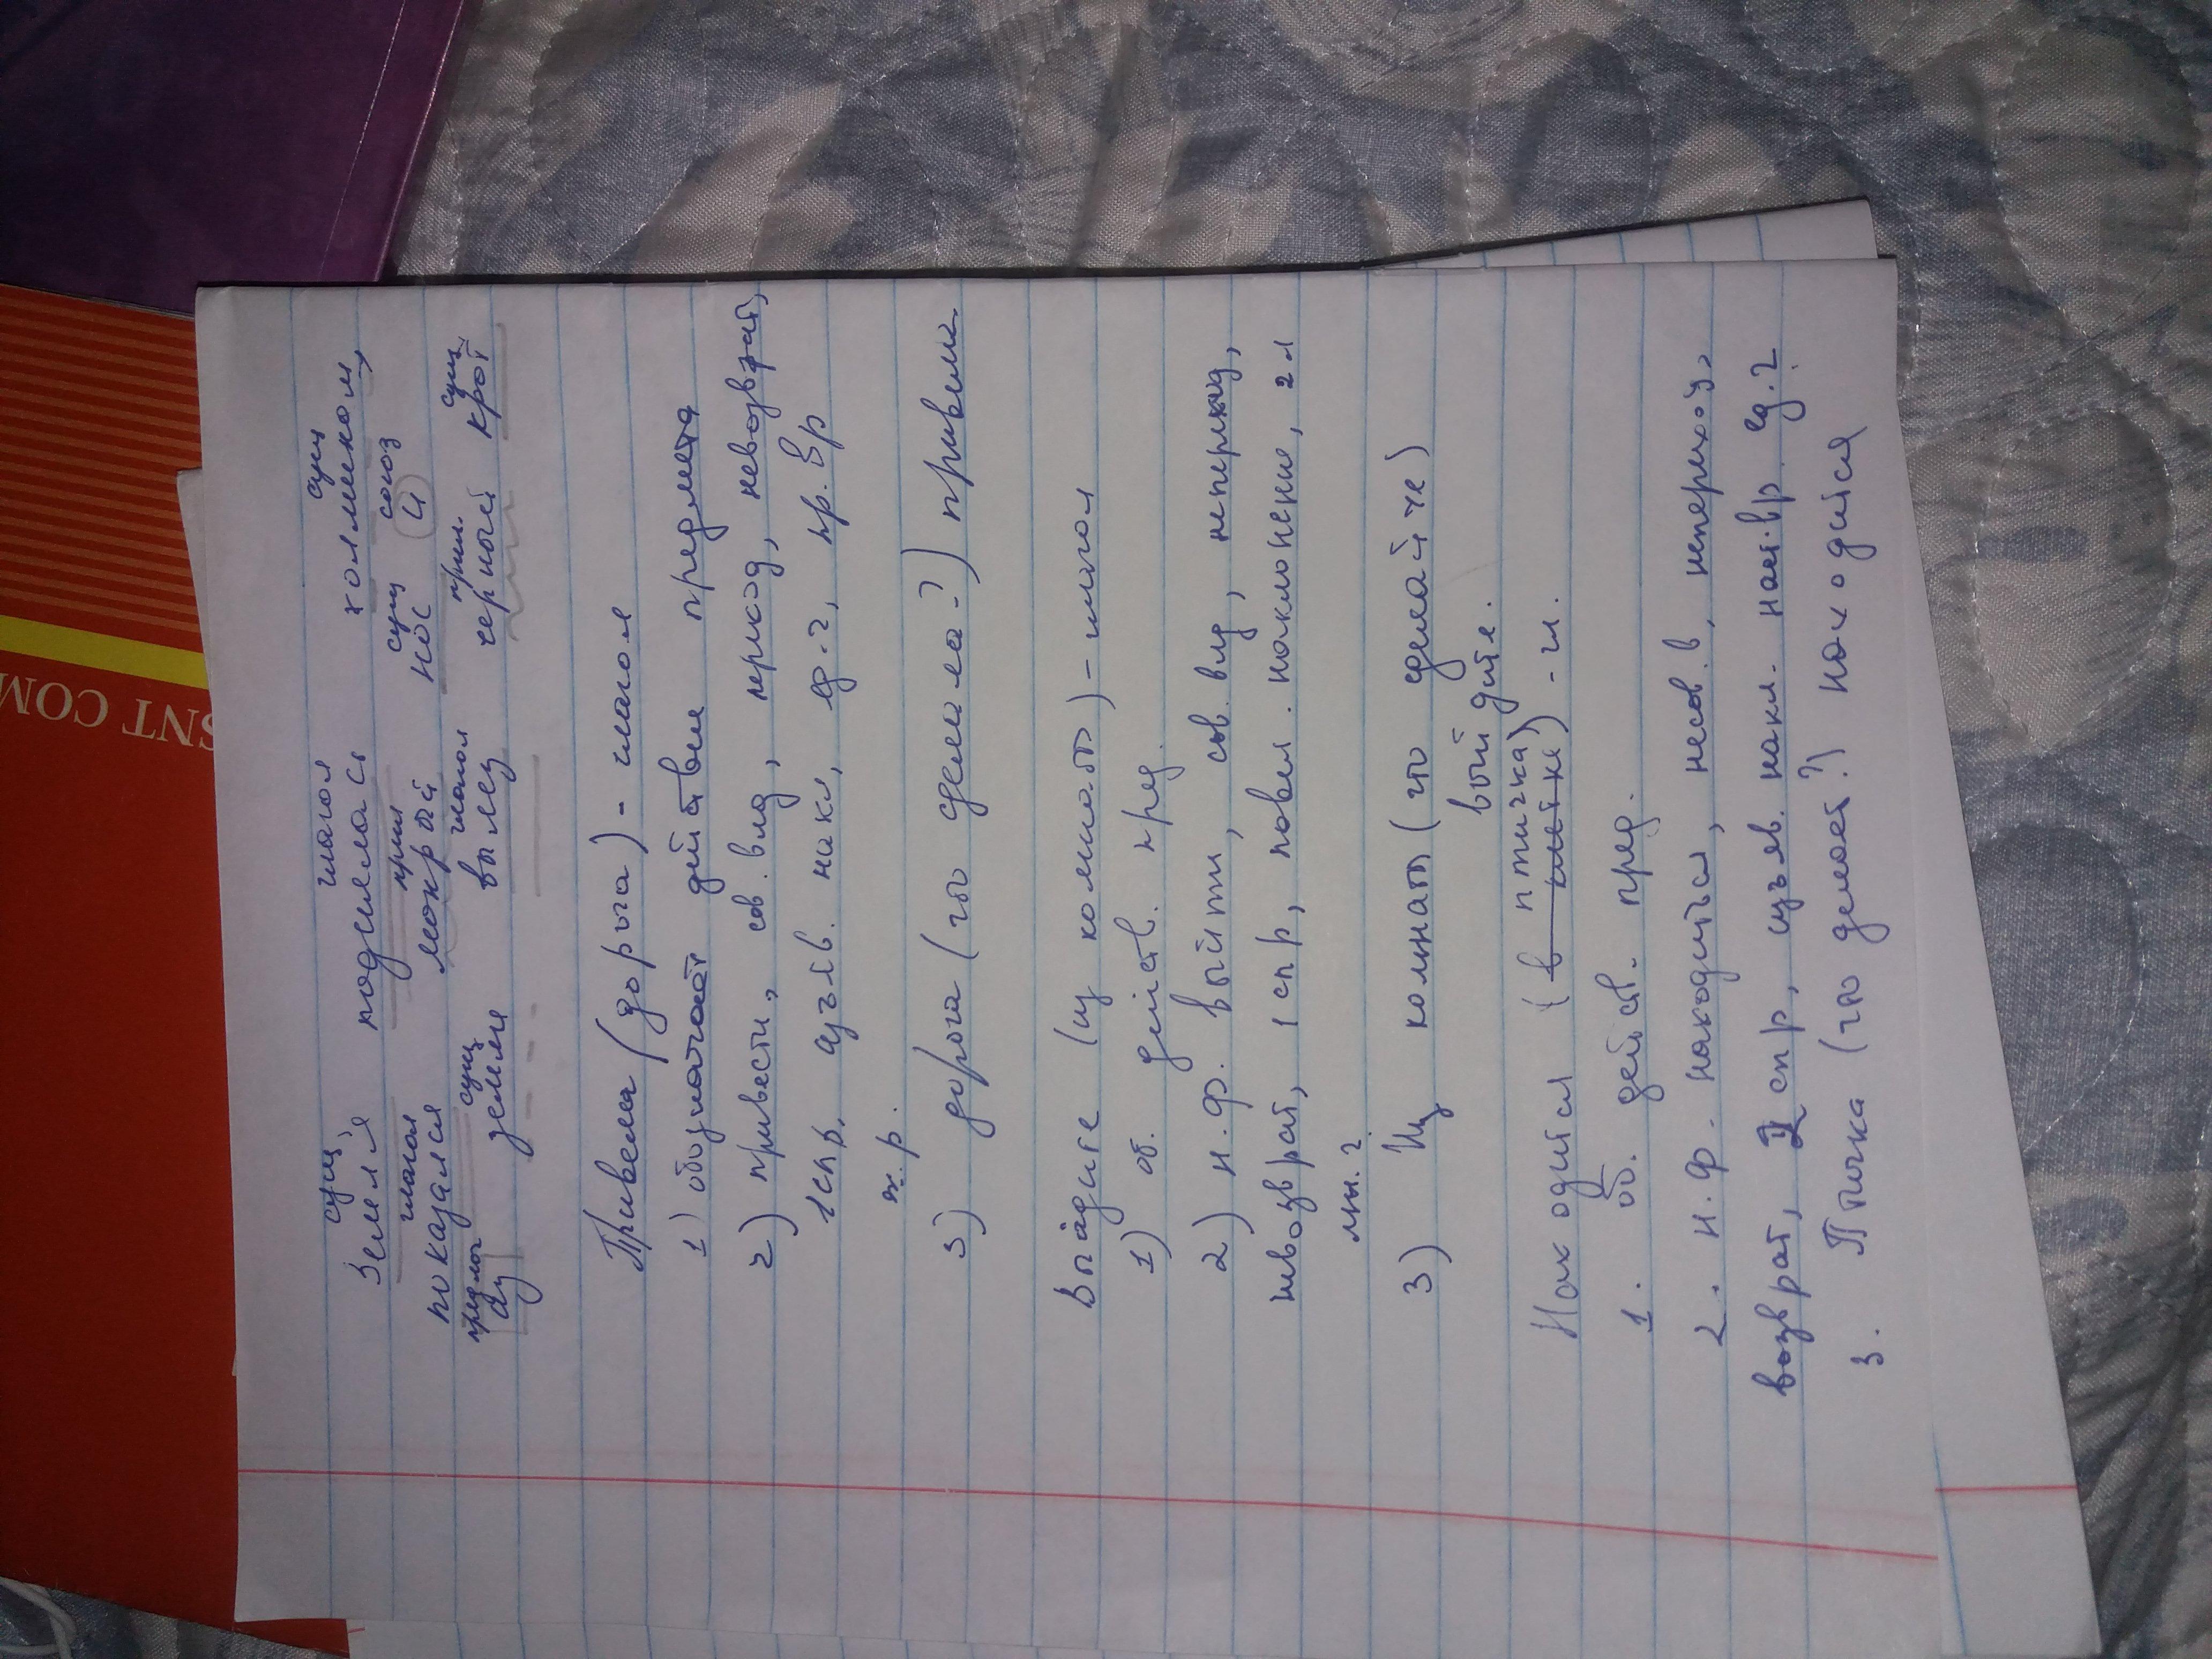 сущ глагол сущ
Земля поднялась холмиком,
глагол прил сущ союз
показался мокрый нос и
предлог сущ глагол прил. сущ
из земли вылез черный крот
Привела (дорога) - глагол
1) обозначает действие предмета
2) привести, сов. вид, переход, невозврат,
1 спр, изъяв. накл, ед.ч, пр. вр
ж. р.
3) дорога (что сделала?) привела
Выйдите (из комнаты) - глагол
1) об. действ. пред.
2) н.ф. выйти, сов. вид, неперход,
невозврат, 1 спр, повел. наклонение, 2 л
мн. ч.
3) Из комнаты (что сделайте)
выйдите.
птичка)
Находится (в клетке) - гл.
1. об. действ. пред.
2. н.ф. находиться, несов. в, неперехоу,
возврат, 2 спр, изъяв. накл. наст. вр. ед. ч
3. Птичка (что делает?) находится
SNT COM